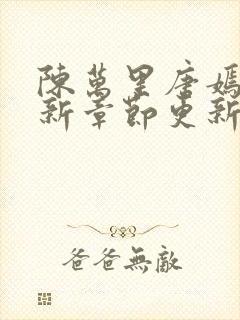 陳萬里唐嫣
新章節更新
爸爸無敵